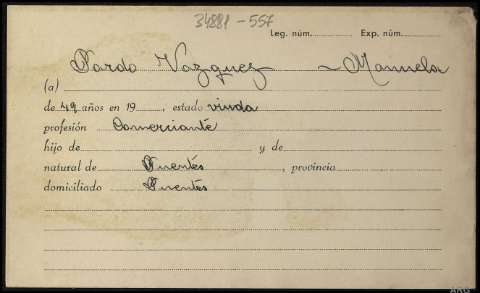 34881-557
Leg. núm. Exp. núm.
Pardo Vazquez - Manuela
(a)
de 49 años en 19 , estado viuda
profesión Comerciante
hijo de y de
natural de Fuentes , provincia
domiciliado Fuentes
ARG